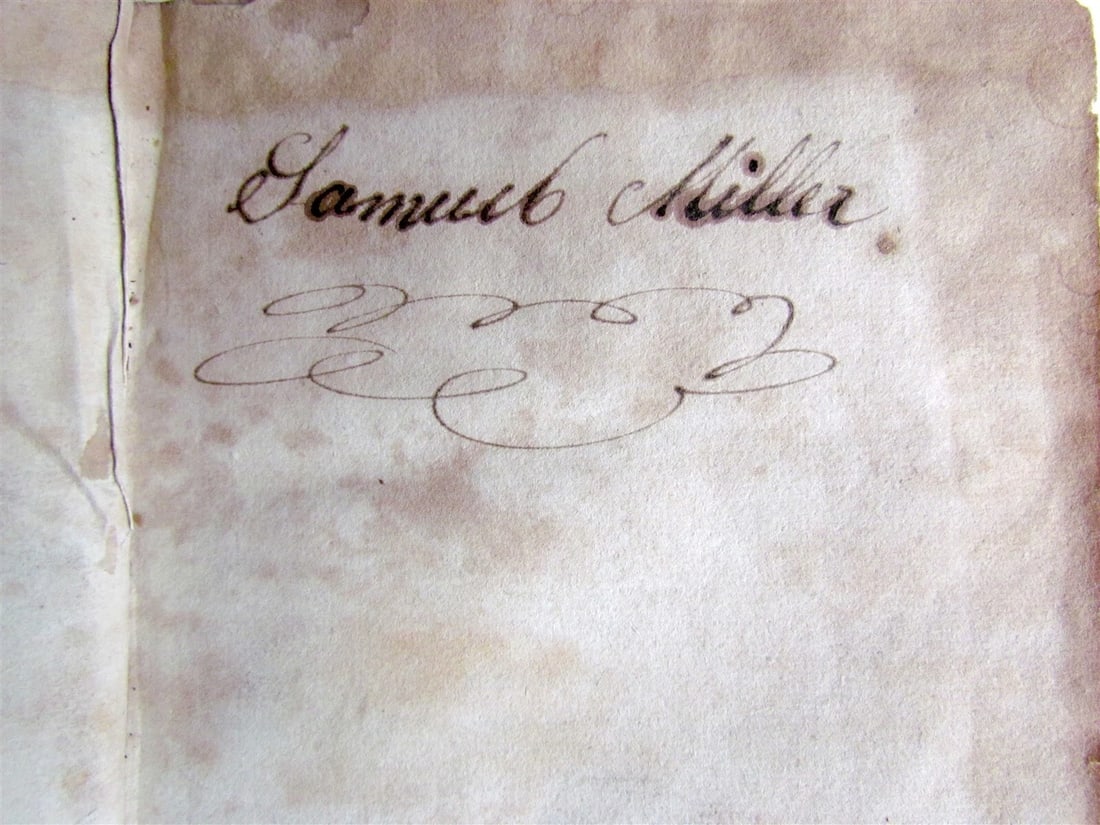 Samuel Miller